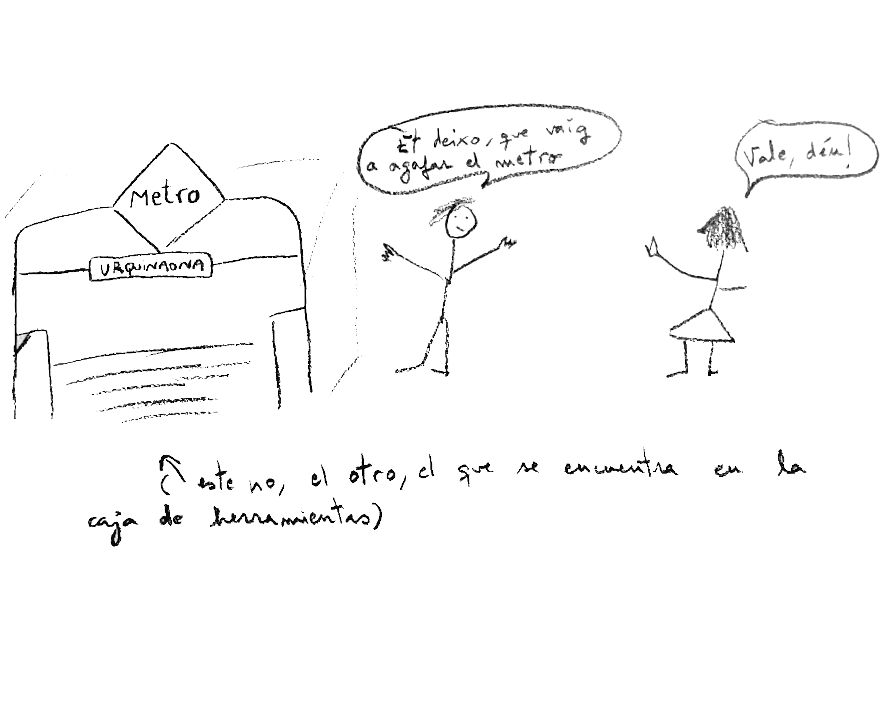 Metro
URQUINAONA
Et deixo, que vaig
a agafar el metro
Vale, déu!
(este no, el otro, el que se encuentra en la
caja de herramientas)